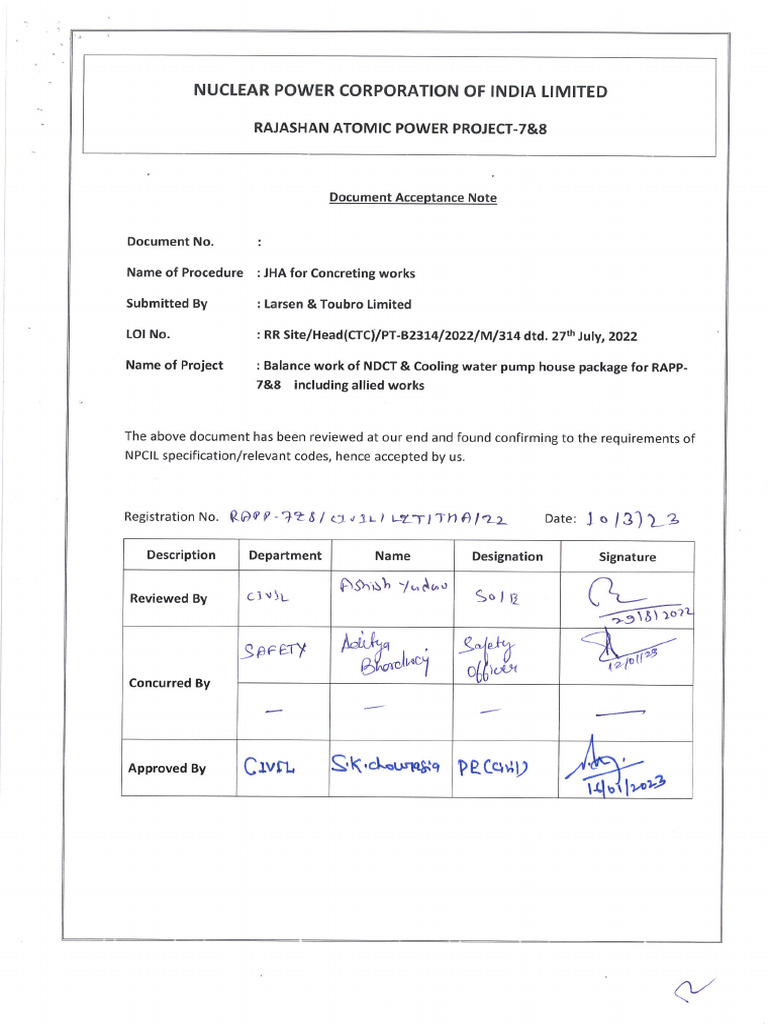 NUCLEAR POWER CORPORATION OF INDIA LIMITED
RAJASHAN ATOMIC POWER PROJECT-7&8
Document Acceptance Note
Document No. :
Name of Procedure : JHA for Concreting works
Submitted By : Larsen & Toubro Limited
LOI No. : RR Site/Head(CTC)/PT-B2314/2022/M/314 dtd. 27th July, 2022
Name of Project : Balance work of NDCT & Cooling water pump house package for RAPP-
7&8 including allied works
The above document has been reviewed at our end and found confirming to the requirements of
NPCIL specification/relevant codes, hence accepted by us.
Registration No. RAPP-7&8/CIVIL/L&T/JHA/22 Date: 10/3/23
Description Department Name Designation Signature
Reviewed By CIVIL Ashish Yadav SO/E 29/8/2022
Concurred By SAFETY Aditya Bhardwaj Safety Officer 12/01/23
— — — —
Approved By CIVIL S.K.chowrasia PE(Civil) 16/01/2023